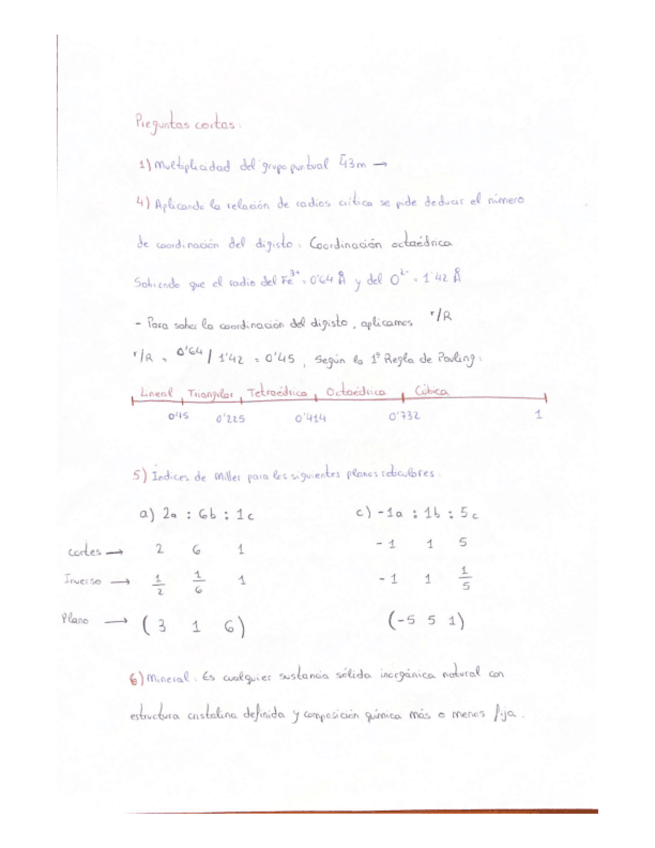 Preguntas cortas.
1) Multiplicidad del grupo puntual 4̄3m →
4) Aplicando la relación de radios crítica se pide deducir el número
de coordinación del digisto. Coordinación octaédrica
Sabiendo que el radio del Fe³⁺ = 0'64 Å y del O²⁻ = 1'42 Å
- Para saber la coordinación del digisto, aplicamos r/R
r/R = 0'64 / 1'42 = 0'45, Según la 1ª Regla de Pauling:
Lineal Triangular Tetraédrica Octaédrica Cúbica
0'15 0'225 0'414 0'732 1
5) Índices de Miller para los siguientes planos reticulares.
a) 2a : 6b : 1c c) -1a : 1b : 5c
cortes → 2 6 1 -1 1 5
Inverso → 1/2 1/6 1 -1 1 1/5
Plano → (3 1 6) (-5 5 1)
6) Mineral. Es cualquier sustancia sólida inorgánica natural con
estructura cristalina definida y composición química más o menos fija.